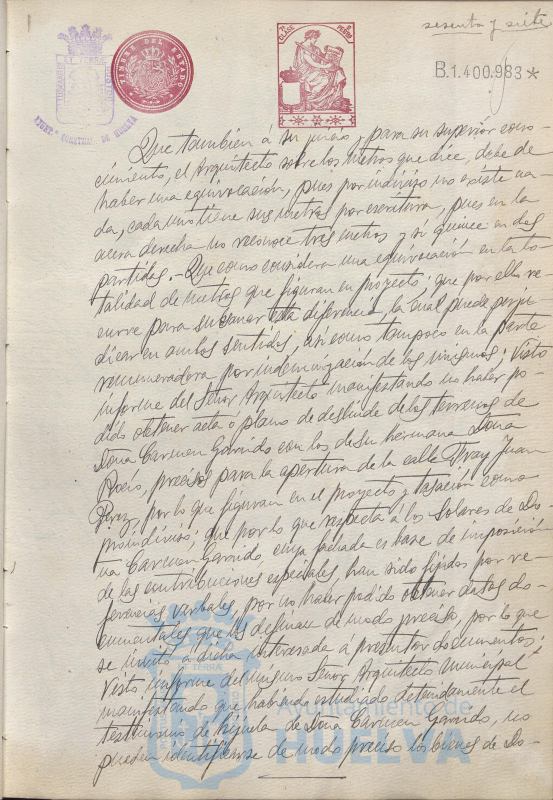 sesenta y siete
TIMBRE DEL ESTADO
7ª CLASE
PESETAS
B.1.400.983*
AYUNT. CONSTITAL. DE HUELVA
Que también á su juicio y para su superior cono-
cimiento, el Arquitecto sobre los metros que dice, debe de
haber una equivocación, pues por indiviso no existe na-
da, cada uno tiene sus metros por escritura, pues en la
acera derecha no reconoce tres metros y si quince en dos
partidas.- Que como considera una equivocación en la to-
talidad de metros que figuran en proyecto; que por ello re-
curre para subsanar esta diferencia, la cual puede perju-
dicar en ambos sentidos, así como tampoco en la parte
remuneradora por indemnización de los mismos. Visto
informe del Señor Arquitecto manifestando no haber po-
dido obtener acta o plano de deslinde de los terrenos de
Doña Carmen Garrido con los de su hermana Doña
Rocio, precisos para la apertura de la calle Fray Juan
Perez, por lo que figuran en el proyecto y tasación como
proindiviso; que por lo que respecta á los solares de Do-
ña Carmen Garrido cuya fachada es base de imposición
de las contribuciones especiales, han sido fijados por re-
ferencias verbales, por no haber podido obtener datos do-
cumentales que los definan de modo preciso, por lo que
se invitó a dicha interesada á presentar documentos.
Visto informe del mismo Señor Arquitecto Municipal
manifestando que habiendo estudiado detenidamente el
testimonio de hijuela de Doña Carmen Garrido, no
pueden identificarse de modo preciso los bienes de Do-
Ayuntamiento de
HUELVA